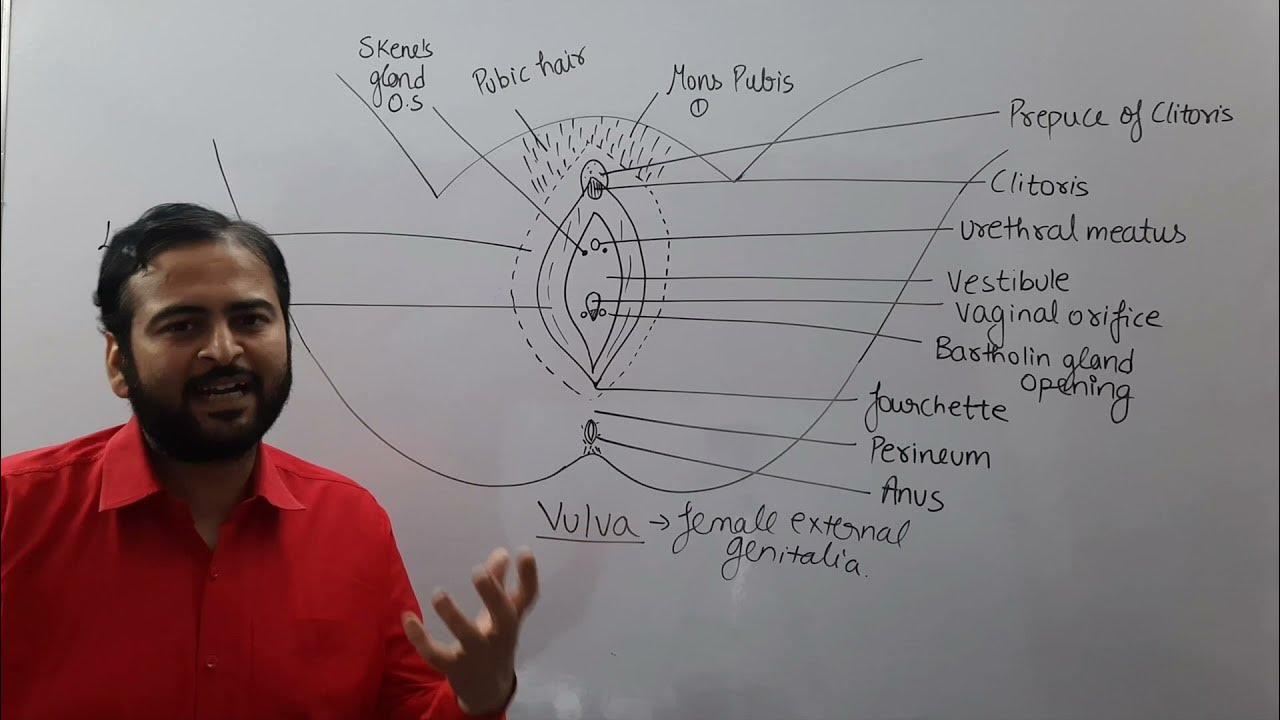 Skene's
gland
O.S
Pubic hair
Mons Pubis
①
Prepuce of Clitoris
Clitoris
urethral meatus
Vestibule
Vaginal orifice
Bartholin gland
opening
fourchette
Perineum
Anus
Vulva → female external
genitalia.